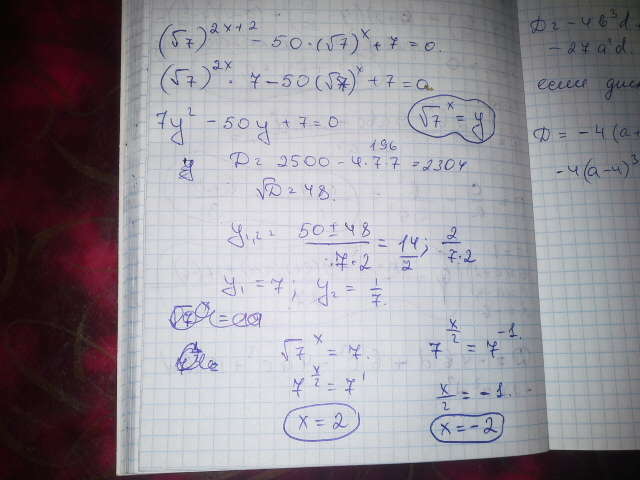 (√7)^{2x+2} - 50·(√7)^x + 7 = 0.
(√7)^{2x} · 7 - 50(√7)^x + 7 = 0
7y² - 50y + 7 = 0
√7^x = y
196
D = 2500 - 4·7·7 = 2304
√D = 48.
y₁,₂ = (50 ± 48)/(7·2) = 14/2; 2/(7·2)
y₁ = 7; y₂ = 1/7.
√7^x = 7.
7^{x/2} = 7^{-1}.
7^{x/2} = 7^1
x/2 = -1.
x = 2
x = -2
D = -4b³d
-27a²d
если дис
D = -4(a
-4(a-4)³